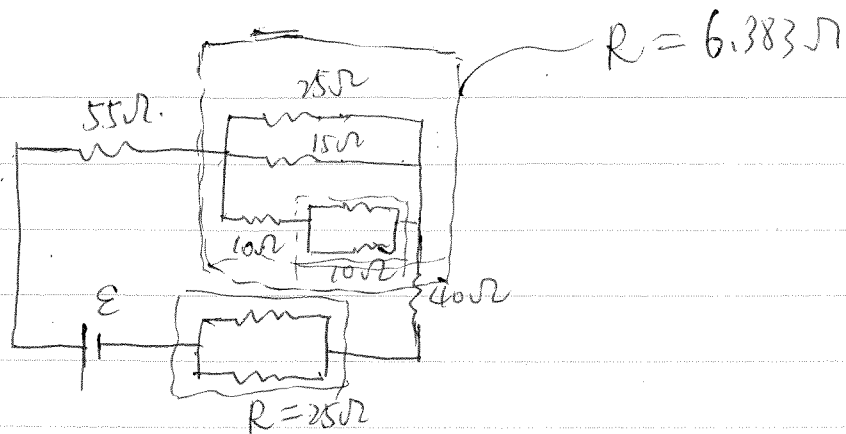 R = 6.383Ω
25Ω
55Ω.
15Ω
10Ω
10Ω
40Ω
ε
R = 25Ω